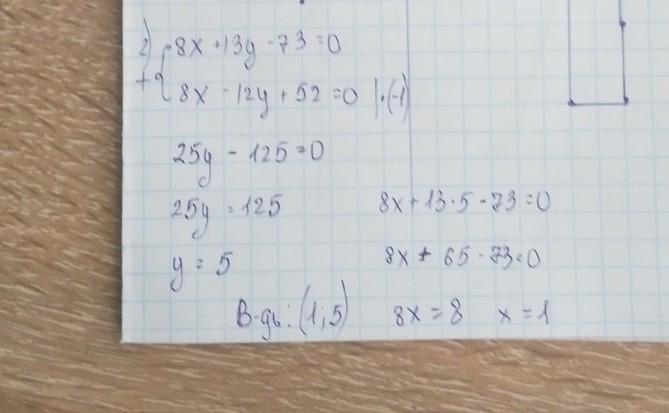 2) 8x + 13y - 73 = 0
+ { 8x - 12y + 52 = 0 | · (-1)
25y - 125 = 0
25y = 125
y = 5
8x + 13 · 5 - 73 = 0
8x + 65 - 73 = 0
8x = 8 x = 1
В-дь: (1; 5)